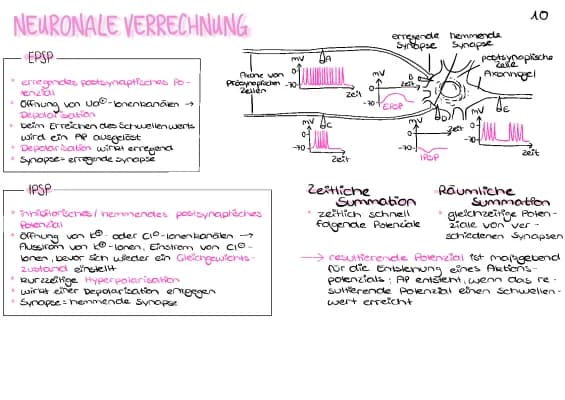 NEURONALE VERRECHNUNG
10
EPSP
• erregendes postsynaptisches Po-
tenzial
• Öffnung von Na⊕-Ionenkanälen →
Depolarisation
• beim Erreichen des Schwellenwerts
wird ein AP ausgelöst
• Depolarisation wirkt erregend
• Synapse = erregende Synapse
erregende
Synapse
hemmende
Synapse
postsynaptische
Zelle
Axonhügel
Axone von
Präsynaptischen
Zellen
mV
0
-70
A
Zeit
mV
0
-70
B
Zeit
EPSP
mV
0
-70
C
Zeit
mV
0
-70
D
Zeit
IPSP
mV
0
-70
E
Zeit
IPSP
• inhibitorisches / hemmendes postsynaptisches
Potenzial
• Öffnung von K⊕- oder Cl⊖-Ionenkanälen →
Ausstrom von K⊕-Ionen, Einstrom von Cl⊖-
Ionen, bevor sich wieder ein Gleichgewichts-
zustand einstellt
• kurzzeitige Hyperpolarisation
• wirkt einer Depolarisation entgegen
• Synapse = hemmende Synapse
Zeitliche
Summation
• zeitlich schnell
folgende Potenziale
Räumliche
Summation
• gleichzeitige Poten-
ziale von ver-
schiedenen Synapsen
→ resultierende Potenzial ist maßgebend
für die Entstehung eines Aktions-
potenzials: AP entsteht, wenn das re-
sultierende Potenzial einen Schwellen-
wert erreicht